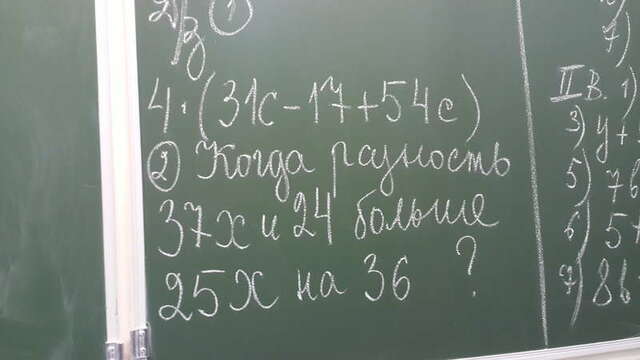 1
4·(31c-17+54c)
2 Когда разность
37x и 24 больше
25x на 36 ?
II В. 1)
3) y+
5) 7
6) 5
7) 8